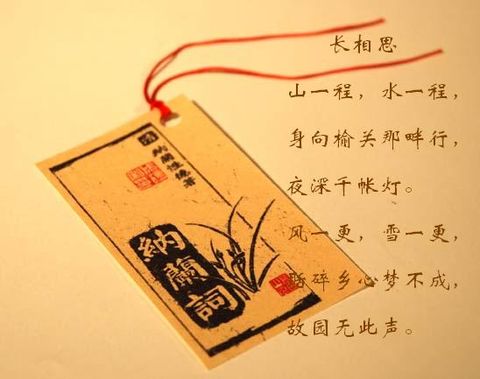 长相思
山一程，水一程，
身向榆关那畔行，
夜深千帐灯。
风一更，雪一更，
聒碎乡心梦不成，
故园无此声。
納蘭性德著
納蘭詞